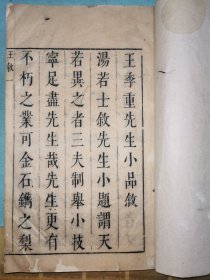 王季重先生小品敘
湯若士敘先生小題謂天
若異之者三夫制舉小技
寧足盡先生哉先生更有
不朽之業可金石鐫之梨
王敘一